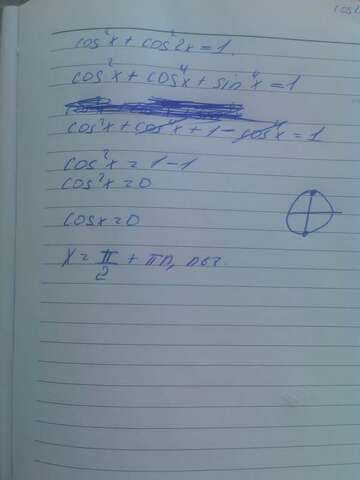 cos²x + cos²2x = 1
cos²x + cos⁴x + sin⁴x = 1
cos²x + cos⁴x + 1 - cos⁴x = 1
cos²x = 1 - 1
cos²x = 0
cosx = 0
x = π/2 + πn, n∈z